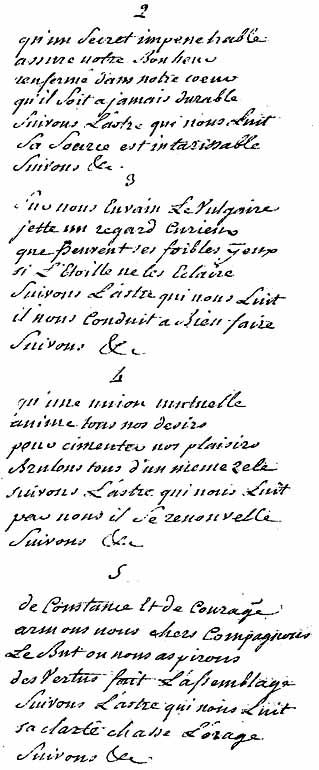 2
qu'un Secret impenetrable
assure notre Bonheur
renfermé dans notre coeur
qu'il Soit a jamais durable
Suivons L'astre qui nous Luit
Sa Source est intarissable
Suivons &c.
3
Sur nous Envain Le Vulgaire
jette un regard Curieux
que peuvent ses foibles yeux
si L'Etoille ne les Eclaire
Suivons L'astre qui nous Luit
il nous Conduit a Bien faire
Suivons &c
4
qu'une union mutuelle
anime tous nos desirs
pour cimenter nos plaisirs
Brulons tous d'un meme zele
suivons L'astre qui nous Luit
par nous il Se renouvelle
Suivons &c
5
de Constance Et de Courage
armons nous chers Compagnons
Le But ou nous aspirons
des Vertus fait L'assemblage
Suivons L'astre qui nous Luit
sa clarté chasse L'orage
Suivons &c